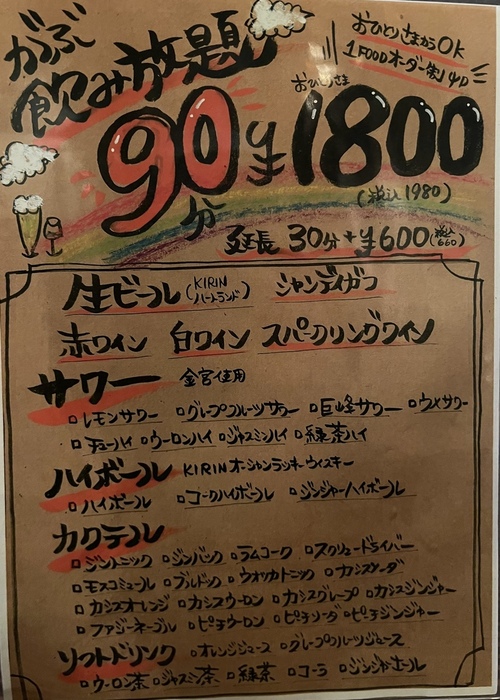 がぶがぶ
飲み放題
おひとりさまからOK
1FOODオーダー制
90分 おひとりさま ¥1800
(税込1980)
延長 30分+¥600(税込660)
生ビール(KIRIN ハートランド) シャンディガフ
赤ワイン 白ワイン スパークリングワイン
サワー 金宮使用
▫レモンサワー ▫グレープフルーツサワー ▫巨峰サワー ▫ウメサワー
▫チューハイ ▫ウーロンハイ ▫ジャスミンハイ ▫緑茶ハイ
ハイボール KIRIN オーシャンラッキーウイスキー
▫ハイボール ▫コークハイボール ▫ジンジャーハイボール
カクテル
▫ジントニック ▫ジンバック ▫ラムコーク ▫スクリュードライバー
▫モスコミュール ▫ブルドック ▫ウォッカトニック ▫カシスソーダ
▫カシスオレンジ ▫カシスウーロン ▫カシスグレープ ▫カシスジンジャー
▫ファジーネーブル ▫ピーチウーロン ▫ピーチソーダ ▫ピーチジンジャー
ソフトドリンク ▫オレンジジュース ▫グレープフルーツジュース
▫ウーロン茶 ▫ジャスミン茶 ▫緑茶 ▫コーラ ▫ジンジャーエール